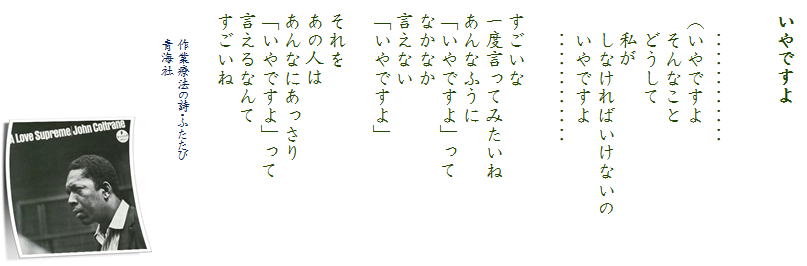 いやですよ
‥‥‥‥‥‥‥
(いやですよ
そんなこと
どうして
私が
しなければいけないの
いやですよ
‥‥‥‥‥‥‥
すごいな
一度言ってみたいね
あんなふうに
「いやですよ」って
なかなか
言えない
「いやですよ」
それを
あの人は
あんなにあっさり
「いやですよ」って
言えるなんて
すごいね
作業療法の詩・ふたたび
青海社
A Love Supreme/John Coltrane